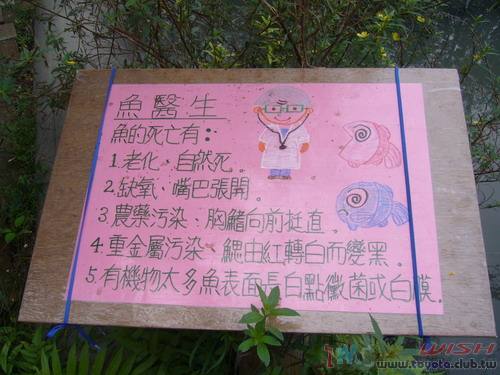 魚醫生
魚的死亡有:
1.老化、自然死。
2.缺氧、嘴巴張開。
3.農藥污染、胸鰭向前挺直。
4.重金屬污染、鰓由紅轉白而變黑。
5.有機物太多魚表面長白點黴菌或白膜.
WISH
www.toyota.club.tw